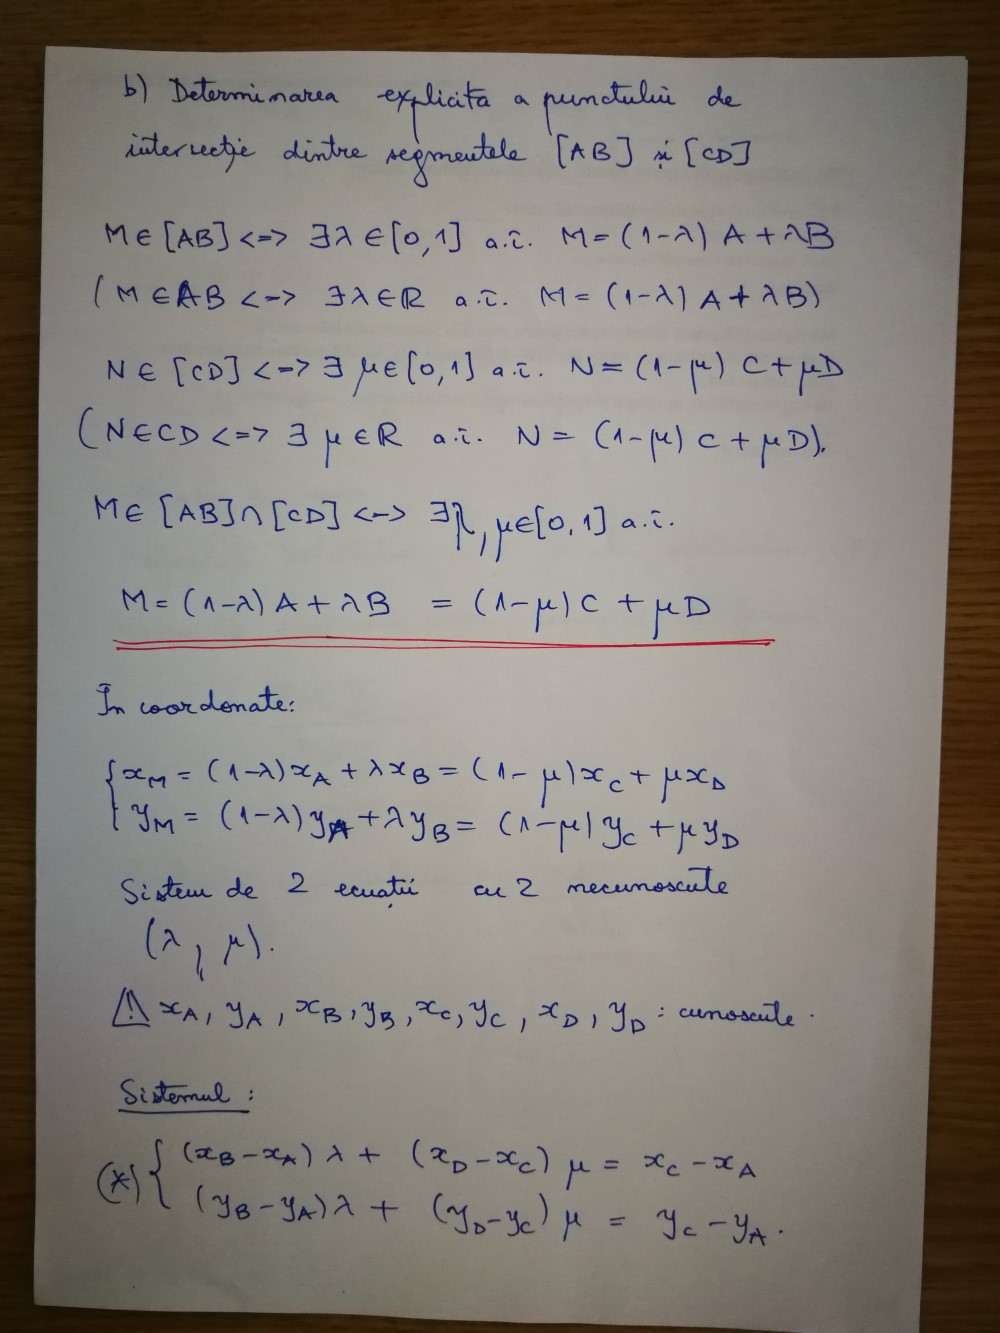 b) Determinarea explicita a punctului de
intersecție dintre segmentele [AB] și [CD]
M∈[AB] <=> ∃λ∈[0,1] a.î. M=(1-λ) A+λB
(M∈AB <=> ∃λ∈R a.î. M=(1-λ) A+λB)
N∈[CD] <=> ∃ μ∈[0,1] a.î. N=(1-μ) C+μD
(N∈CD <=> ∃ μ∈R a.î. N=(1-μ) C+μD).
M∈[AB]∩[CD] <=> ∃λ, μ∈[0,1] a.î.
M=(1-λ)A+λB = (1-μ)C+μD
În coordonate:
{ x_M = (1-λ)x_A + λx_B = (1-μ)x_C + μx_D
y_M = (1-λ)y_A + λy_B = (1-μ)y_C + μy_D
Sistem de 2 ecuații cu 2 necunoscute
(λ, μ).
⚠ x_A, y_A, x_B, y_B, x_C, y_C, x_D, y_D : cunoscute.
Sistemul :
(*) { (x_B-x_A) λ + (x_D-x_C) μ = x_C-x_A
(y_B-y_A) λ + (y_D-y_C) μ = y_C-y_A.